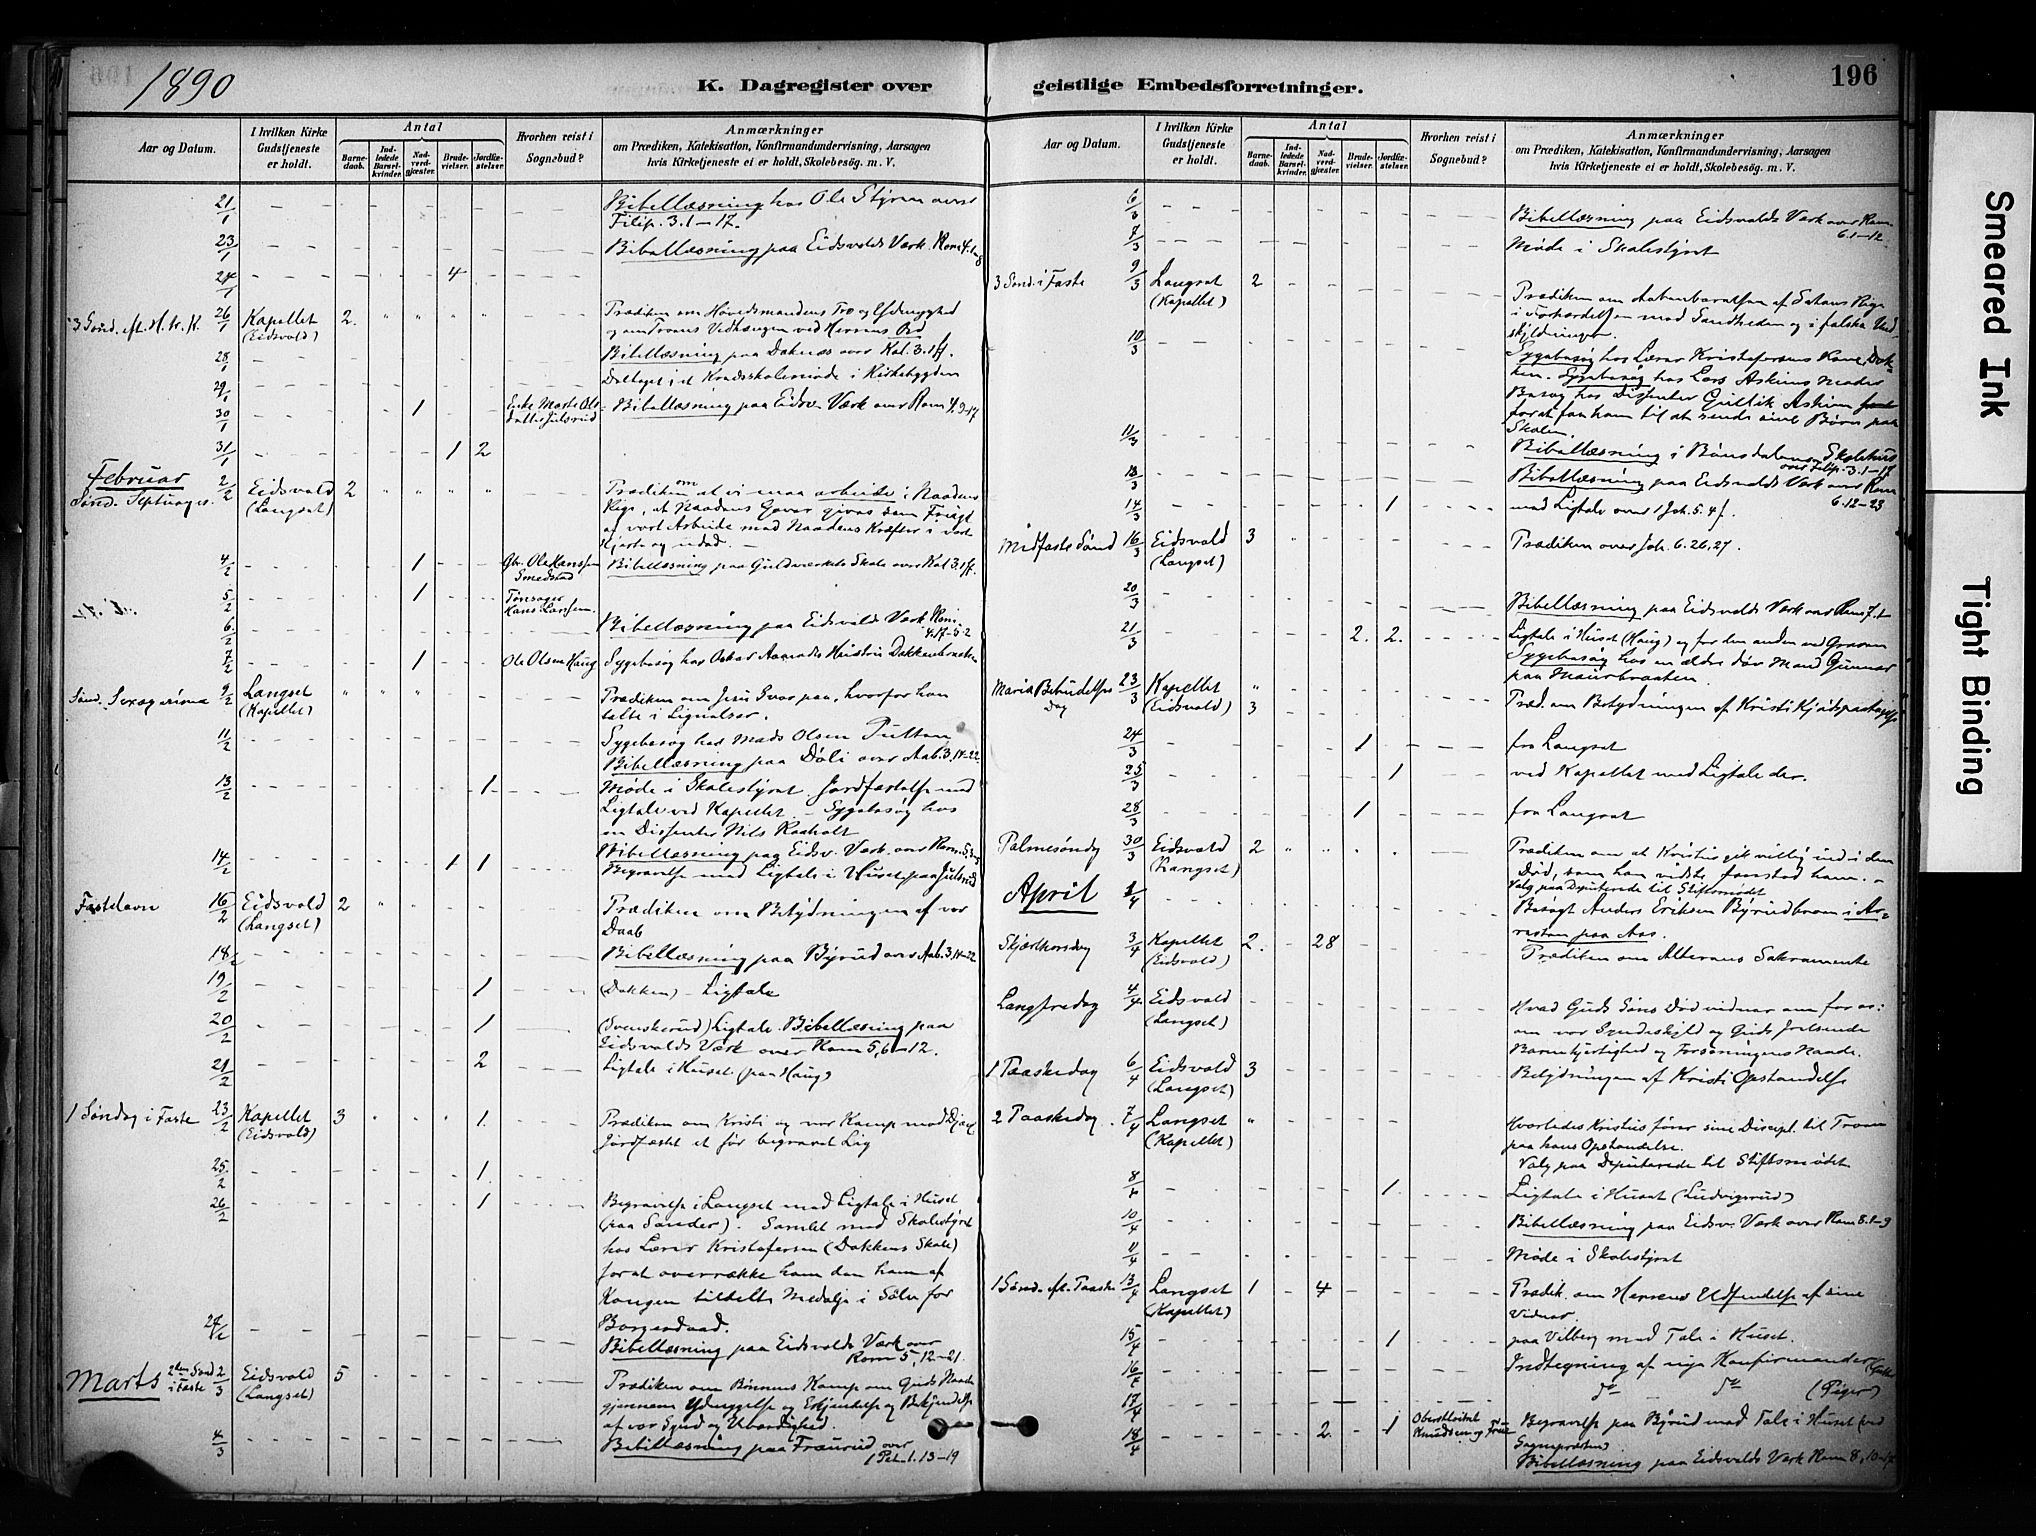 1890
K. Dagregister over
Aar og Datum.
I hvilken Kirke Gudstjeneste er holdt.
Antal
Barne-daab.
Ind-ledede Barsel-kvinder.
Nad-verd-gjæster.
Brude-vielser.
Jordfæ-stelser.
Hvorhen reist i Sognebud?
Anmærkninger
om Prædiken, Katekisation, Konfirmandundervisning, Aarsagen
hvis Kirketjeneste ei er holdt, Skolebesög. m. V.
21/1 Bibellæsning hos Ole Styren over
Filip. 3.1–17.
23/1 Bibellæsning paa Eidsvolds Værk. Rom 4.1–8
24/1 4
3 Sønd. eft. H. tr. K. 26/1 Kapellet 2. Prædiken om Høvedsmandens Tro og Ydmyghed
(Eidsvold) og om Troens Vedhængen ved Herrens Ord
28/1 Bibellæsning paa Doknæs over Kol. 3.1ff.
29/1 Deltaget i et Kredsskolemøde i Kirkebygden
30/1 1 Enke Marte Ols- Bibellæsning paa Eidsv. Værk over Rom 4.9–17
datter Julsrud
31/1 1 2
Februar 2/2 Eidsvold 2 Prædiken om at vi maa arbeide i Naadens
Sønd. Septuages. (Langset) Rige, at Naadens Gaver gives som Frugt
af vort Arbeide med Naadens Kræfter i vort
Hjerte og udad. –
4/2 1 Gbr. Ole Hanssen Bibellæsning paa Guldværkets Skole over Kol 3.1ff.
Smedstad
5/2 1 Tønsager
Hans Larssen.
6/2 Bibellæsning paa Eidsvolds Værk Rom.
4.17–5.2
7/2 1 Ole Olsen Haug Sygebesøg hos Oskar Aamodts Hustru Dokkenbraaten
Sønd. Sexagesima 9/2 Langset Prædiken om Jesu Svar paa, hvorfor han
(Kapellet) talte i Lignelser.
11/2 Sygebesøg hos Mads Olsen Putten
Bibellæsning paa Døli over Aab. 3.14–22
13/2 1 Møde i Skolestyret. Jordfæstelse med
Ligtale ved Kapellet. – Sygebesøg hos
en Dissenter Nils Raaholt
14/2 1 1 Bibellæsning paa Eidsv. Værk. over Rom. 5,3–5
Begravelse med Ligtale i Huset paa Julsrud
Fastelavn 16/2 Eidsvold 2 Prædiken om Betydningen af vor
(Langset) Daab
18/2 Bibellæsning paa Byrud over Aab. 3.14–22
19/2 1 (Dokken) – Ligtale
20/2 1 (Svenskerud) Ligtale. Bibellæsning paa
Eidsvolds Værk over Rom 5,6–12.
21/2 2 Ligtale i Huset paa Haug
1 Søndag i Faste 23/2 Kapellet 3 1. Prædiken om Kristi og vor Kamp mod Djæv
(Eidsvold) Jordfæstet et før begravet Lig
25/2 1.
26/2 1 Begravelse i Langset med Ligtale i Huset
(paa Sander). Samlet med Skolestyret
hos Lærer Kristofersen (Dokkens Skole)
for at overrække ham den ham af
Kongen tildelte Medalje i Sølv for
Borgerdaad.
27/2 Bibellæsning paa Eidsvolds Værk over
Rom 5, 12–21.
Marts 2den Sønd i Faste 2/3 Eidsvold 5 Prædiken om Bønnens Kamp om Guds Naade
(Langset) gjennem Ydmygelse og Erkjendelse og Bekjendelse
af vor Synd og Uværdighed.
4/3 Bibellæsning paa Traurud over
1 Pet. 1.13–19
geistlige Embedsforretninger.
196
Aar og Datum.
I hvilken Kirke Gudstjeneste er holdt.
Antal
Barne-daab.
Ind-ledede Barsel-kvinder.
Nad-verd-gjæster.
Brude-vielser.
Jordfæ-stelser.
Hvorhen reist i Sognebud?
Anmærkninger
om Prædiken, Katekisation, Konfirmandundervisning, Aarsagen
hvis Kirketjeneste ei er holdt, Skolebesög. m. V.
6/3 Bibellæsning paa Eidsvolds Værk over Rom
6.1–12
7/3 Møde i Skolestyret
3 Sønd. i Faste 9/3 Langset 2 Prædiken om Aabenbarelsen af Satans Rige
(Kapellet) i Forhærdelsen mod Sandheden og i falske Und
skyldninger.
10/3 Sygebesøg hos Lærer Kristofersens Kone, Dok-
ken. Sygebesøg hos Lars Askims Moder
Besøg hos Dissenter Gullik Askim
for at faa ham til at sende sine Børn paa
Skolen.
11/3 Bibellæsning i Bønsdalens Skolehus
over Filip. 3.1–17
13/3 Bibellæsning paa Eidsvolds Værk over Rom
6.12–23
14/3 1 med Ligtale over 1 Joh. 5.4f.
Midfaste Sønd 16/3 Eidsvold 3 Prædiken over Joh. 6.26,27.
(Langset)
20/3 Bibellæsning paa Eidsvolds Værk over Rom 7.1
21/3 2. 2. Ligtale i Huset (Haug) og for den anden ved Graven
Sygebesøg hos en ældre døv Mand Gunnar
paa Maurbraaten.
Maria Bebudelses 23/3 Kapellet Præd. om Betydningen af Kristi Kjødspaatagelse
Dag (Eidsvold) 3
24/3 1 fra Langset
25/3 1 ved Kapellet med Ligtale der.
28/3 1 fra Langset
Palmesøndag 30/3 Eidsvold 2 Prædiken om at Kristus gik villig ind i den
(Langset) Død, som han vidste forestod ham. –
Valg paa Deputerede til Stiftsmødet
April 1/4 Besøgt Anders Eriksen Byrudbraa i Ar-
resten paa Aas.
Skjærthorsdag 3/4 Kapellet 2. 28 Prædiken om Alterens Sakramente
(Eidsvold)
Langfredag 4/4 Eidsvold Hvad Guds Søns Død vidner om for os:
(Langset) om vor Syndeskyld og Guds frelsende
Barmhjertighed og Forsoningens Naade.
1 Paaskedag 6/4 Eidsvold 3 Betydningen af Kristi Opstandelse
(Langset)
2 Paaskedag. 7/4 Langset Hvorledes Kristus fører sine Discipl. til Troen
(Kapellet) paa hans Opstandelse.
Valg paa Deputerede til Stiftsmødet
8/4 1 Ligtale i Huset (Ludvigsrud)
10/4 Bibellæsning paa Eidsv. Værk over Rom 8.1–9
11/4 Møde i Skolestyret
1 Sønd. eft. Paaske 13/4 Langset 1 4 Prædik. om Herrens Udsendelse af sine
(Kapellet) Vidner.
15/4 1 paa Vilberg med Tale i Huset.
16/4 Indtegning af nye Konfirmander (Gutter)
17/4 do – do (Piger)
18/4 2. 1 Oberstløitnt Begravelse paa Byrud med Tale i Huset (ved
Knudsen og Frue Sognepræsten)
Bibellæsning paa Eidsvolds Værk Rom 8, 10–17
Smeared Ink
Tight Binding